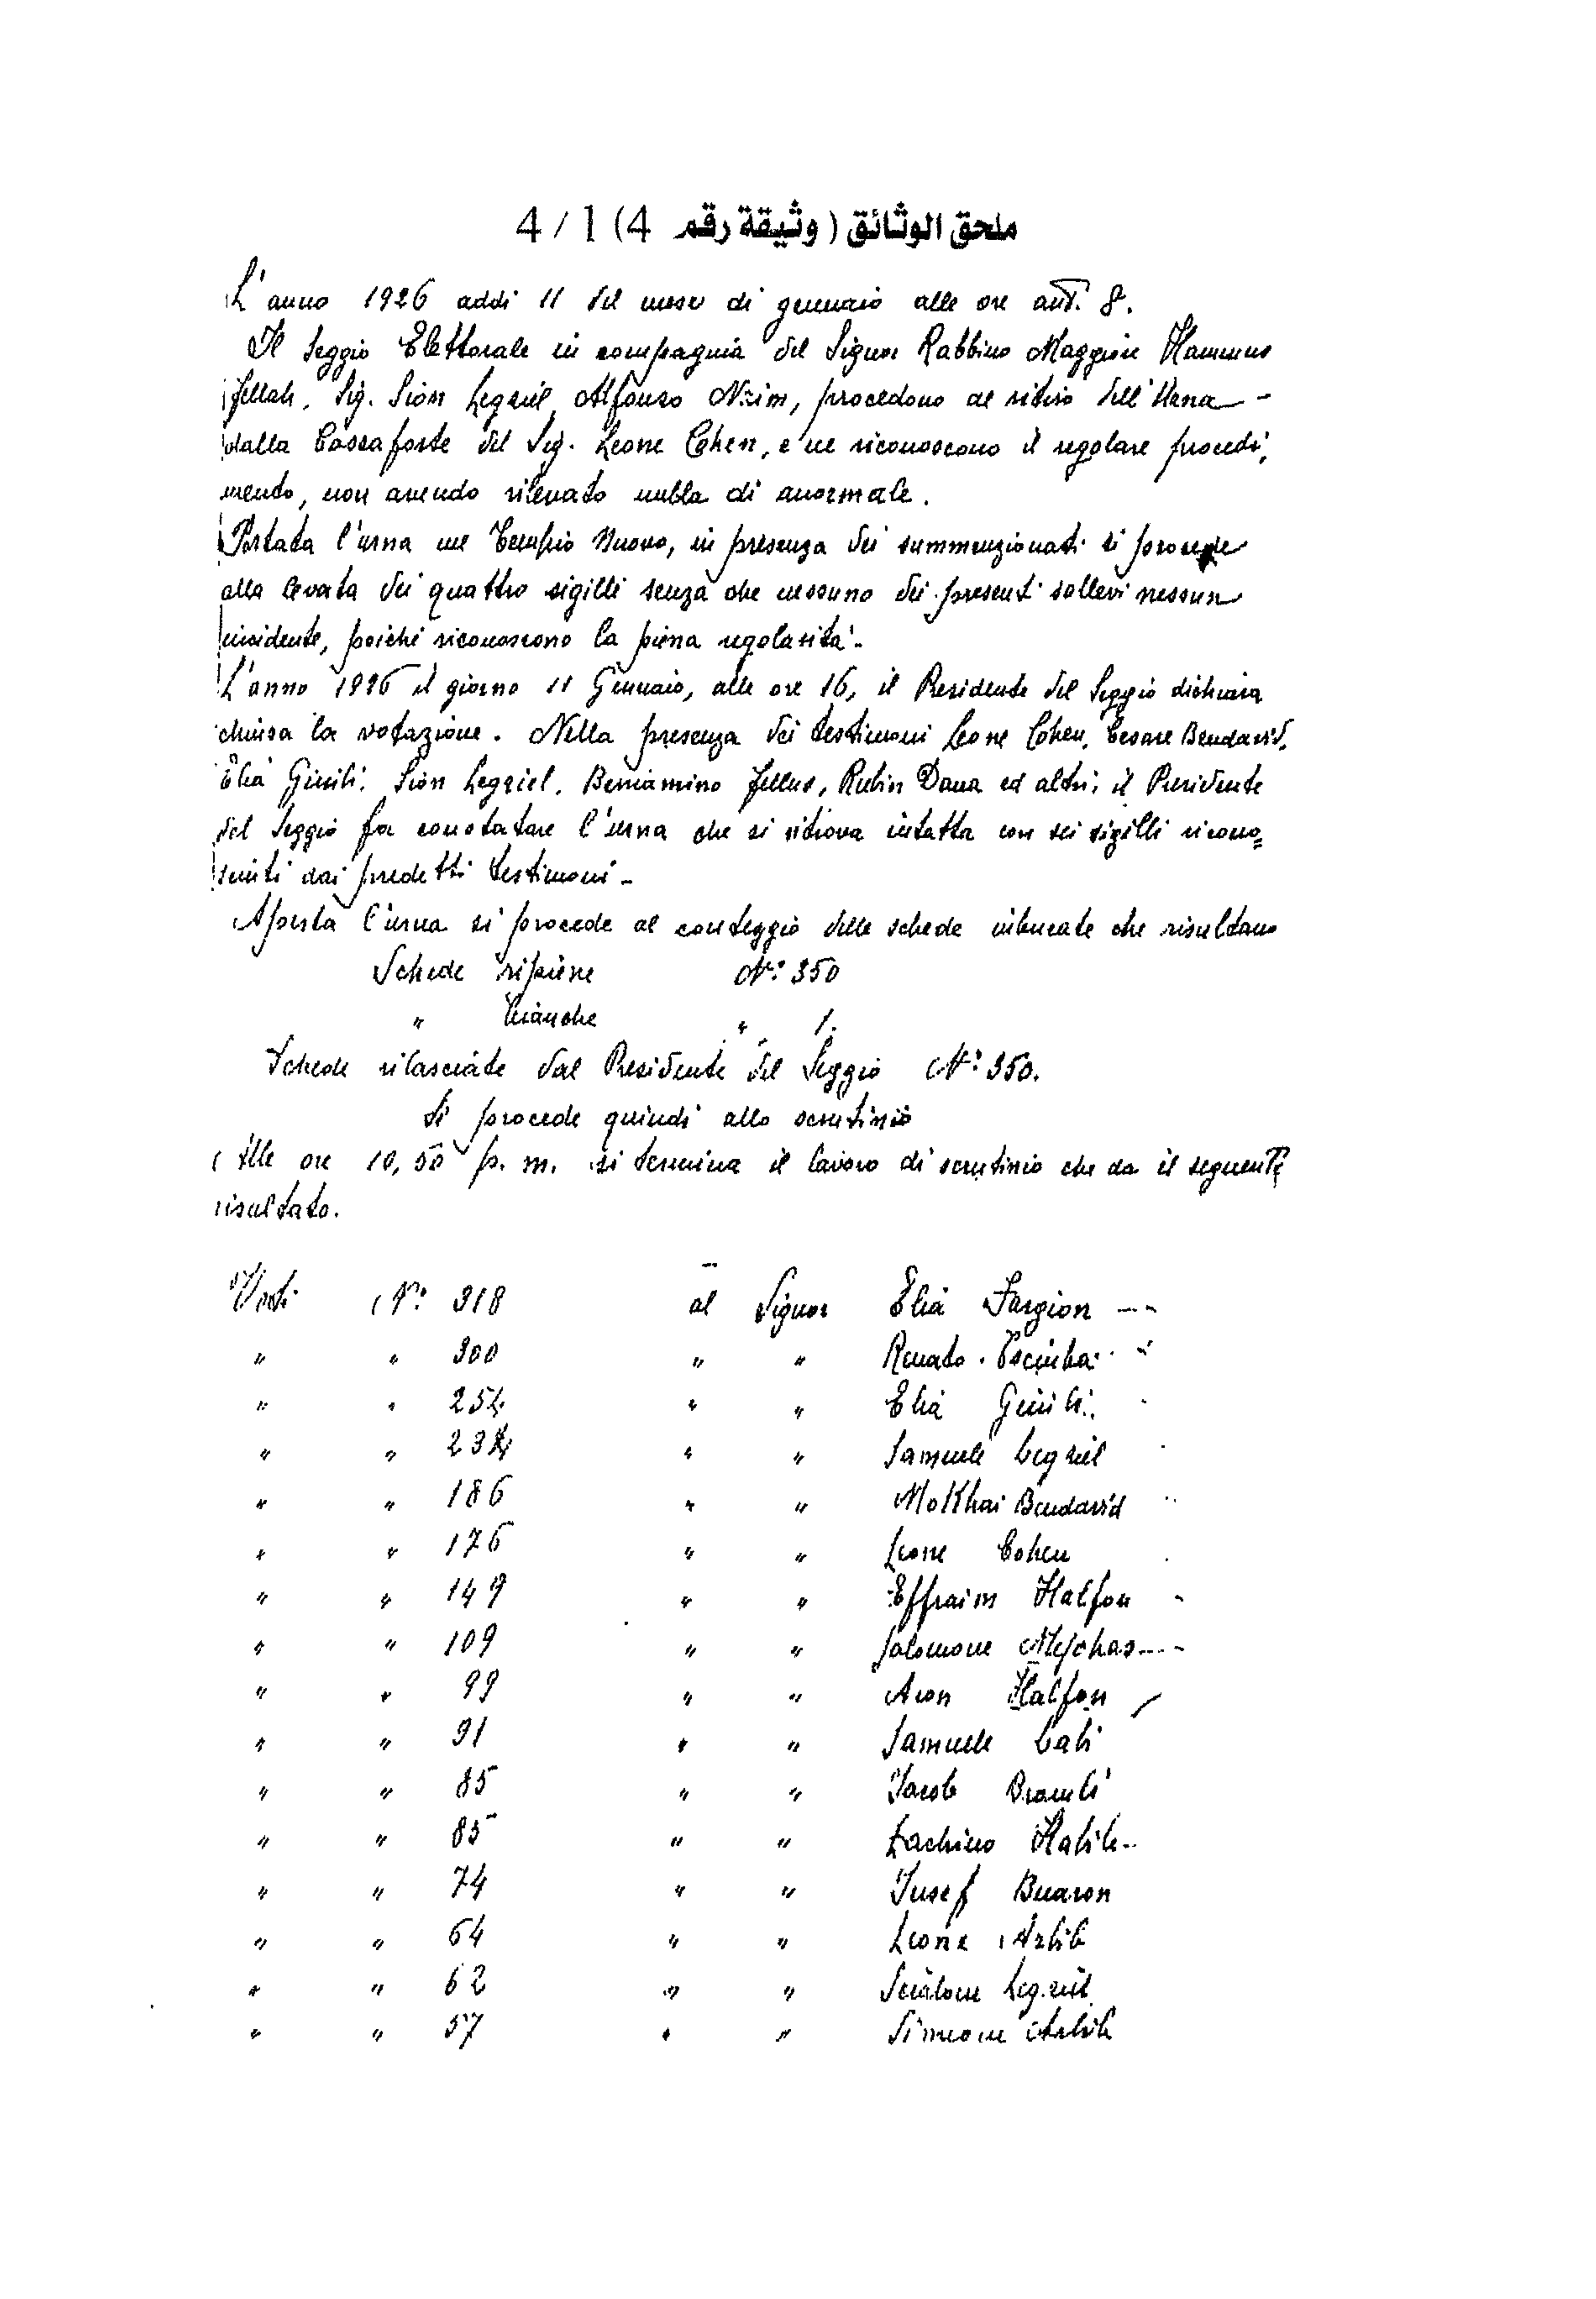 ملحق الوثائق ( وثيقة رقم 4) 4/1
L'anno 1926 addi 11 del mese di gennaio alle ore ant. 8.
Il Seggio Elettorale in compagnia del Signor Rabbino Maggiore Hammus
Fellah, Sig. Sion Legziel, Alfonso Nzim, procedono al ritiro dell'Urna
dalla Cassaforte del Sig. Leone Cohen, e ne riconoscono il regolare procedi,
mento, non avendo rilevato nulla di anormale.
Portata l'urna nel Tempio Nuovo, in presenza dei summenzionati si procede
alla levata dei quattro sigilli senza che nessuno dei presenti sollevi nessun
incidente, poichè riconoscono la piena regolarità.-
L'anno 1926 il giorno 11 Gennaio, alle ore 16, il Presidente del Seggio dichiara
chiusa la votazione. Nella presenza dei testimoni Leone Cohen, Cesare Bendavid,
Elia Giuili, Sion Legziel, Beniamino Fellus, Rubin Dana ed altri; il Presidente
del Seggio fa constatare l'urna che si ritrova intatta con sei sigilli ricono=
sciuti dai predetti testimoni -
Aperta l'urna si procede al conteggio delle schede imbucate che risultano
Schede ripiene N: 350
" bianche " 1.
Schede rilasciate dal Presidente del Seggio N: 350.
Si procede quindi allo scrutinio
Alle ore 10,50 p. m. si termina il lavoro di scrutinio che da il seguente
risultato.
Voti N: 318 al Signor Elia Fargion
" " 300 " " Renato
" " 254 " " Elia Giuili
" " 234 " " Samuele Legziel
" " 186 " " Mokhai Bendavid
" " 176 " " Leone Cohen
" " 149 " " Effraim Halfon
" " 109 " " Salomone
" " 99 " " Aron Halfon
" " 91 " " Samuele
" " 85 " " Jacob
" " 85 " " Lachino Habib
" " 74 " " Jusef Buaron
" " 64 " " Leone Arbib
" " 62 " " Scialom Legziel
" " 57 " " Simeone Arbib